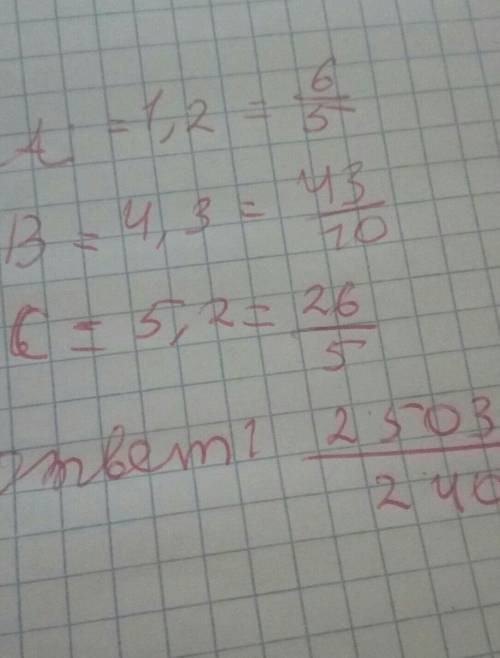 A = 1,2 = 6/5
B = 4,3 = 43/10
C = 5,2 = 26/5
Ответ: 2503/240